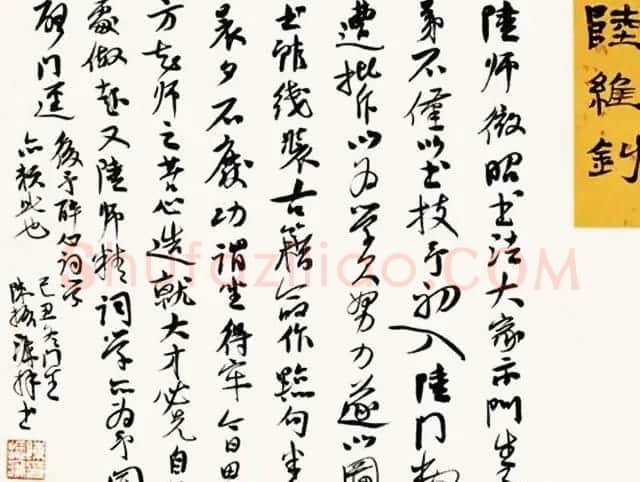 陸維釗
陸師微昭書法大家示門生
弟不僅以書技予初入陸門
遭批斥以為學不努力遂以圖
書館綫裝古籍令作點句坐
晨夕不廢功謂坐得牢今日
方知師之苦心造就大才必先自
處做起又陸師精詞學亦為予
門逕後予醉心詞學
亦賴此也
己丑冬門生
陳振濂拜書
Shufaziliao.COM